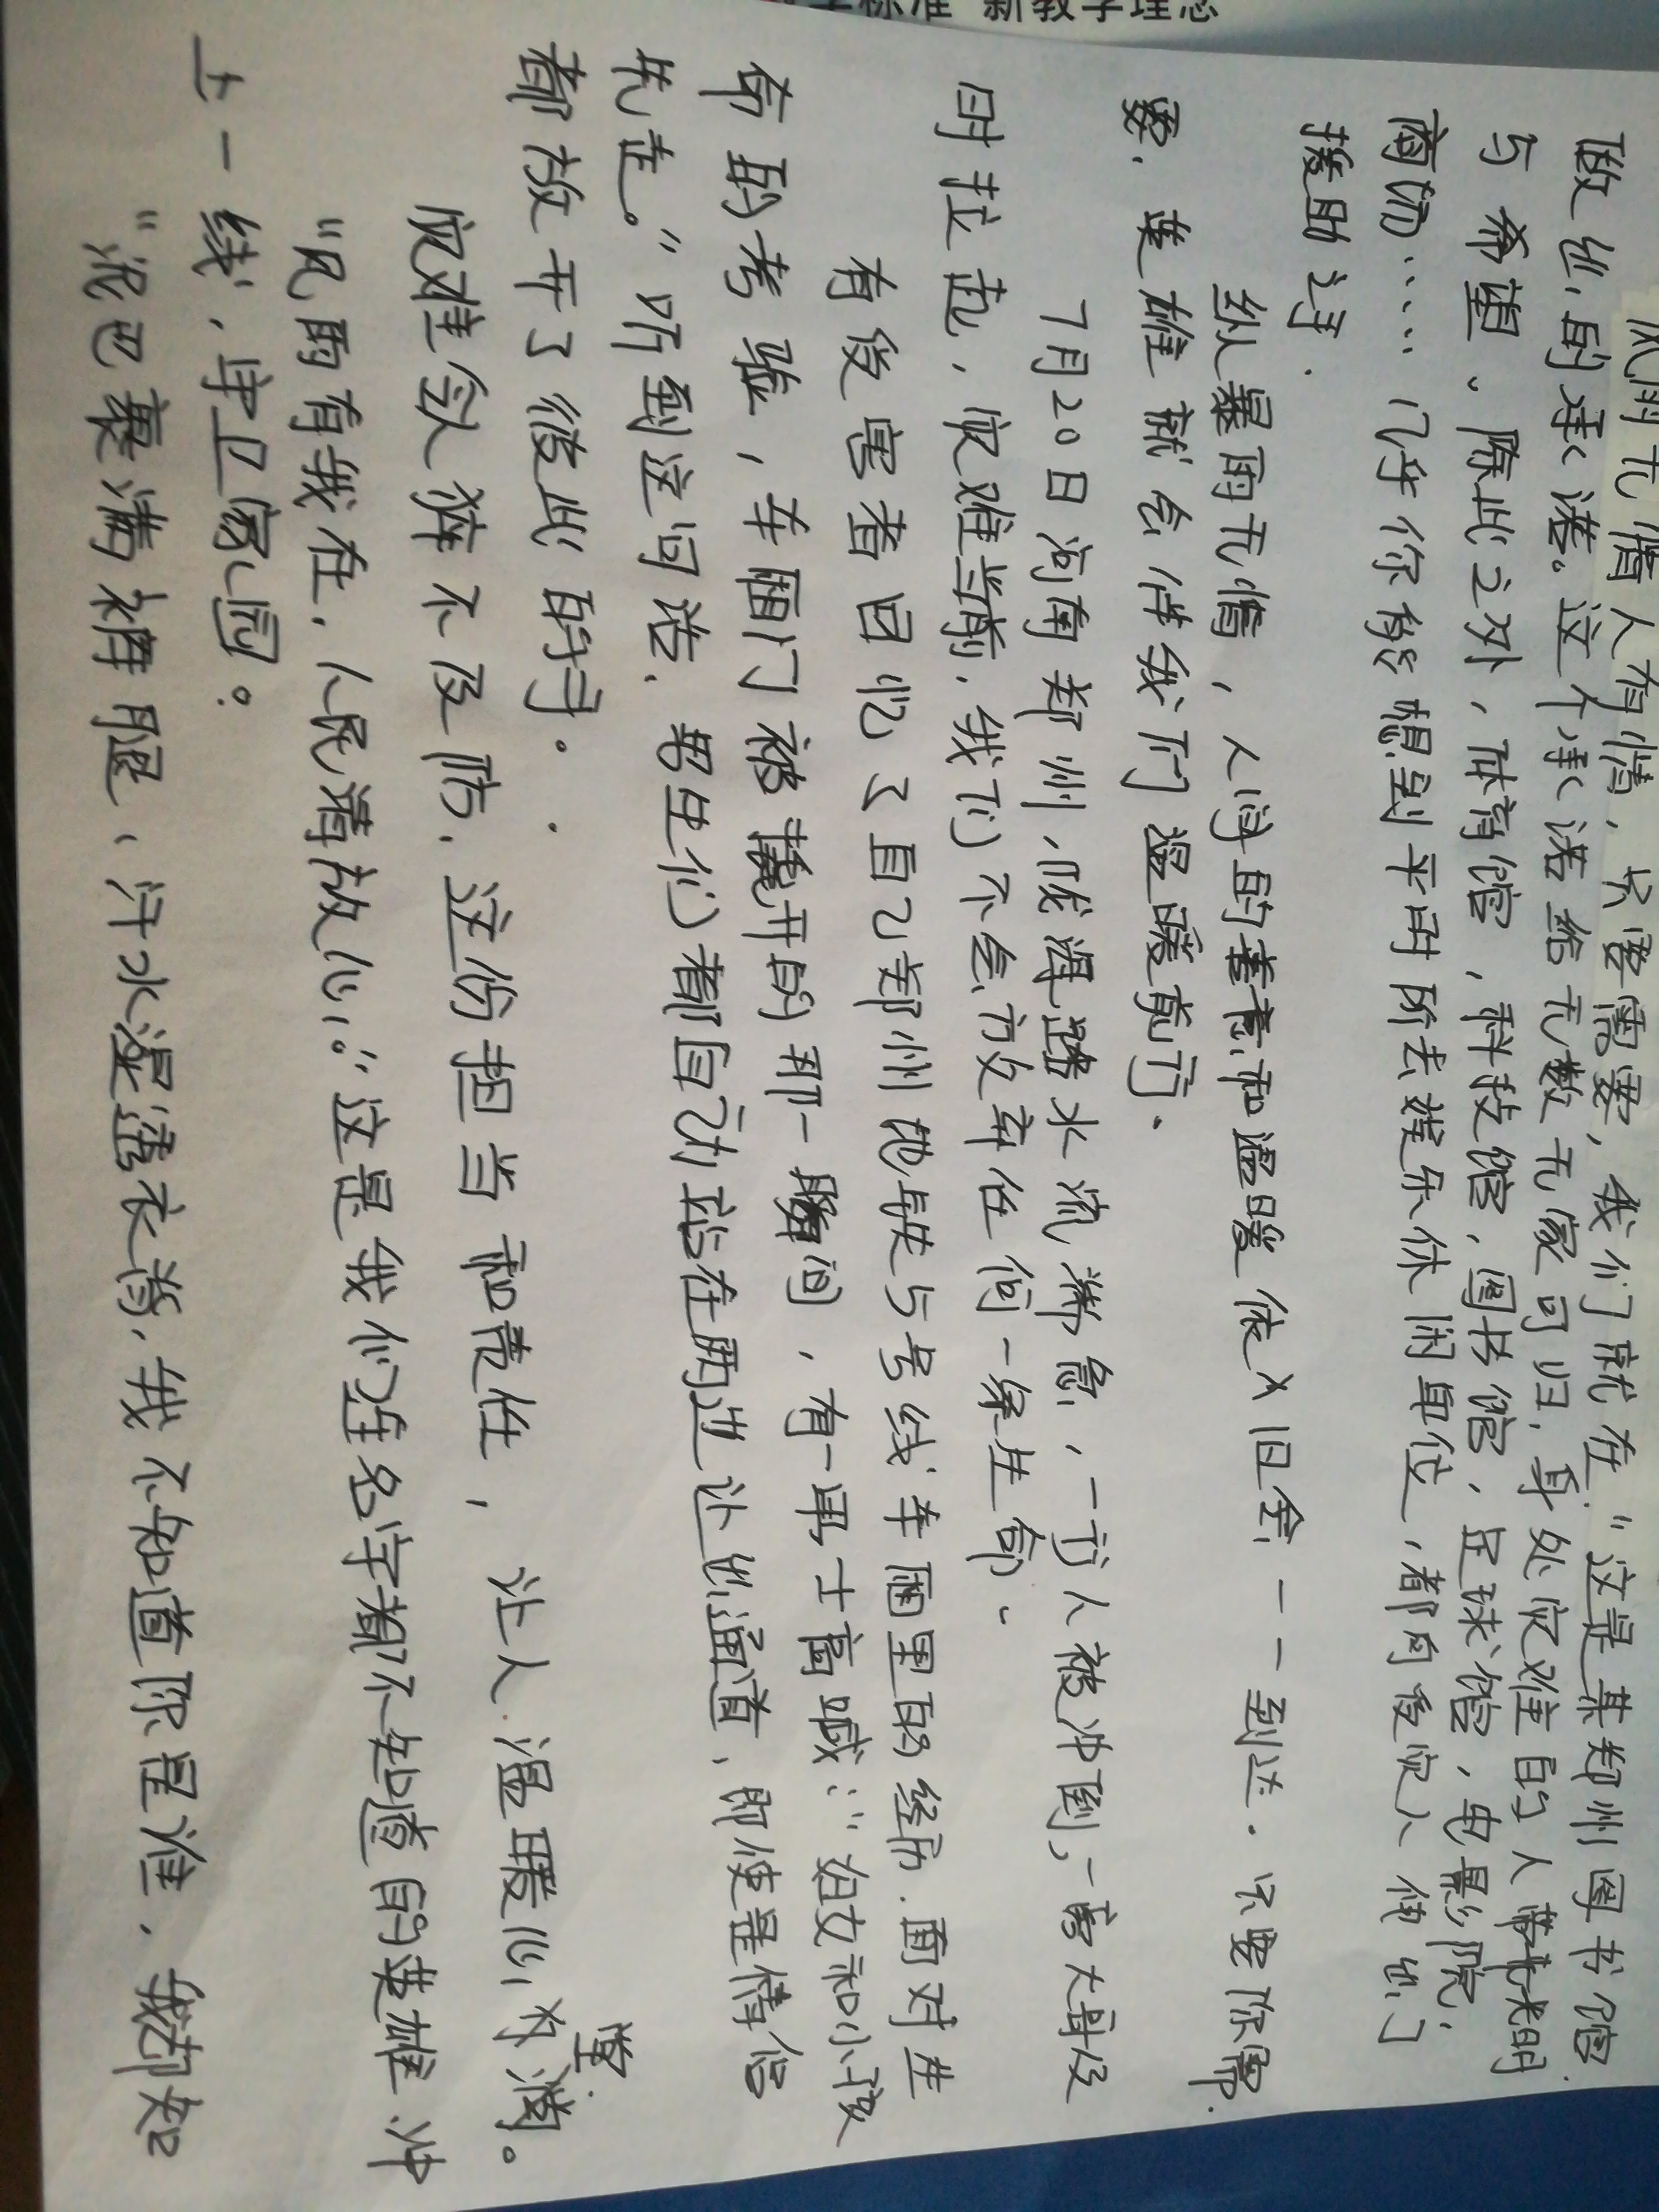 标准 新教学理念
风雨无情人有情，只要需要，我们就在"这是某郑州图书馆
做出的承诺。这个承诺给无数无家可归，身处灾难的人带来光明
与希望。除此之外，体育馆，科技馆，图书馆，足球馆，电影院，
商场……几乎你能想到平时所去娱乐休闲单位，都向受灾人伸出了
援助之手．
纵暴雨无情，人性的善意和温暖依旧会一一到达．只要你需
要．英雄就会伴我们温暖前行．
7月20日河南郑州，陇海路水流湍急，一市人被冲倒，一大哥及
时拉起，灾难当前，我们不会放弃任何一条生命．
有受害者回忆了自己郑州地铁5号线车厢里的经历．面对生
命的考验，车厢门被撬开的那一瞬间，有一男士高喊："妇女和小孩
先走。"听到这句话，男生们都自动站在两边让出通道，即使是情侣
都放开了彼此的手．
灾难令人猝不及防．这份担当和责任，让人温暖心
"风雨有我在，人民请放心。"这是那些连名字都不知道的英雄 冲
于一线，守卫家园。
"泥巴裹满裤腿，汗水湿透衣背，我不知道你是谁，我却